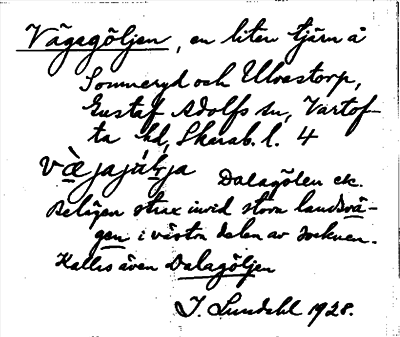 Vägagöljen, en liten tjärn å
Sommeryd och Ulvestorp,
Gustaf Adolfs sn, Vartof-
ta hd, Skarab. l. 4
Dalagölen ek.
Belägen strax invid stora landsvä-
gen i västra delen av socknen.
Kallas även Dalagöljen
J. Lundahl 1928.